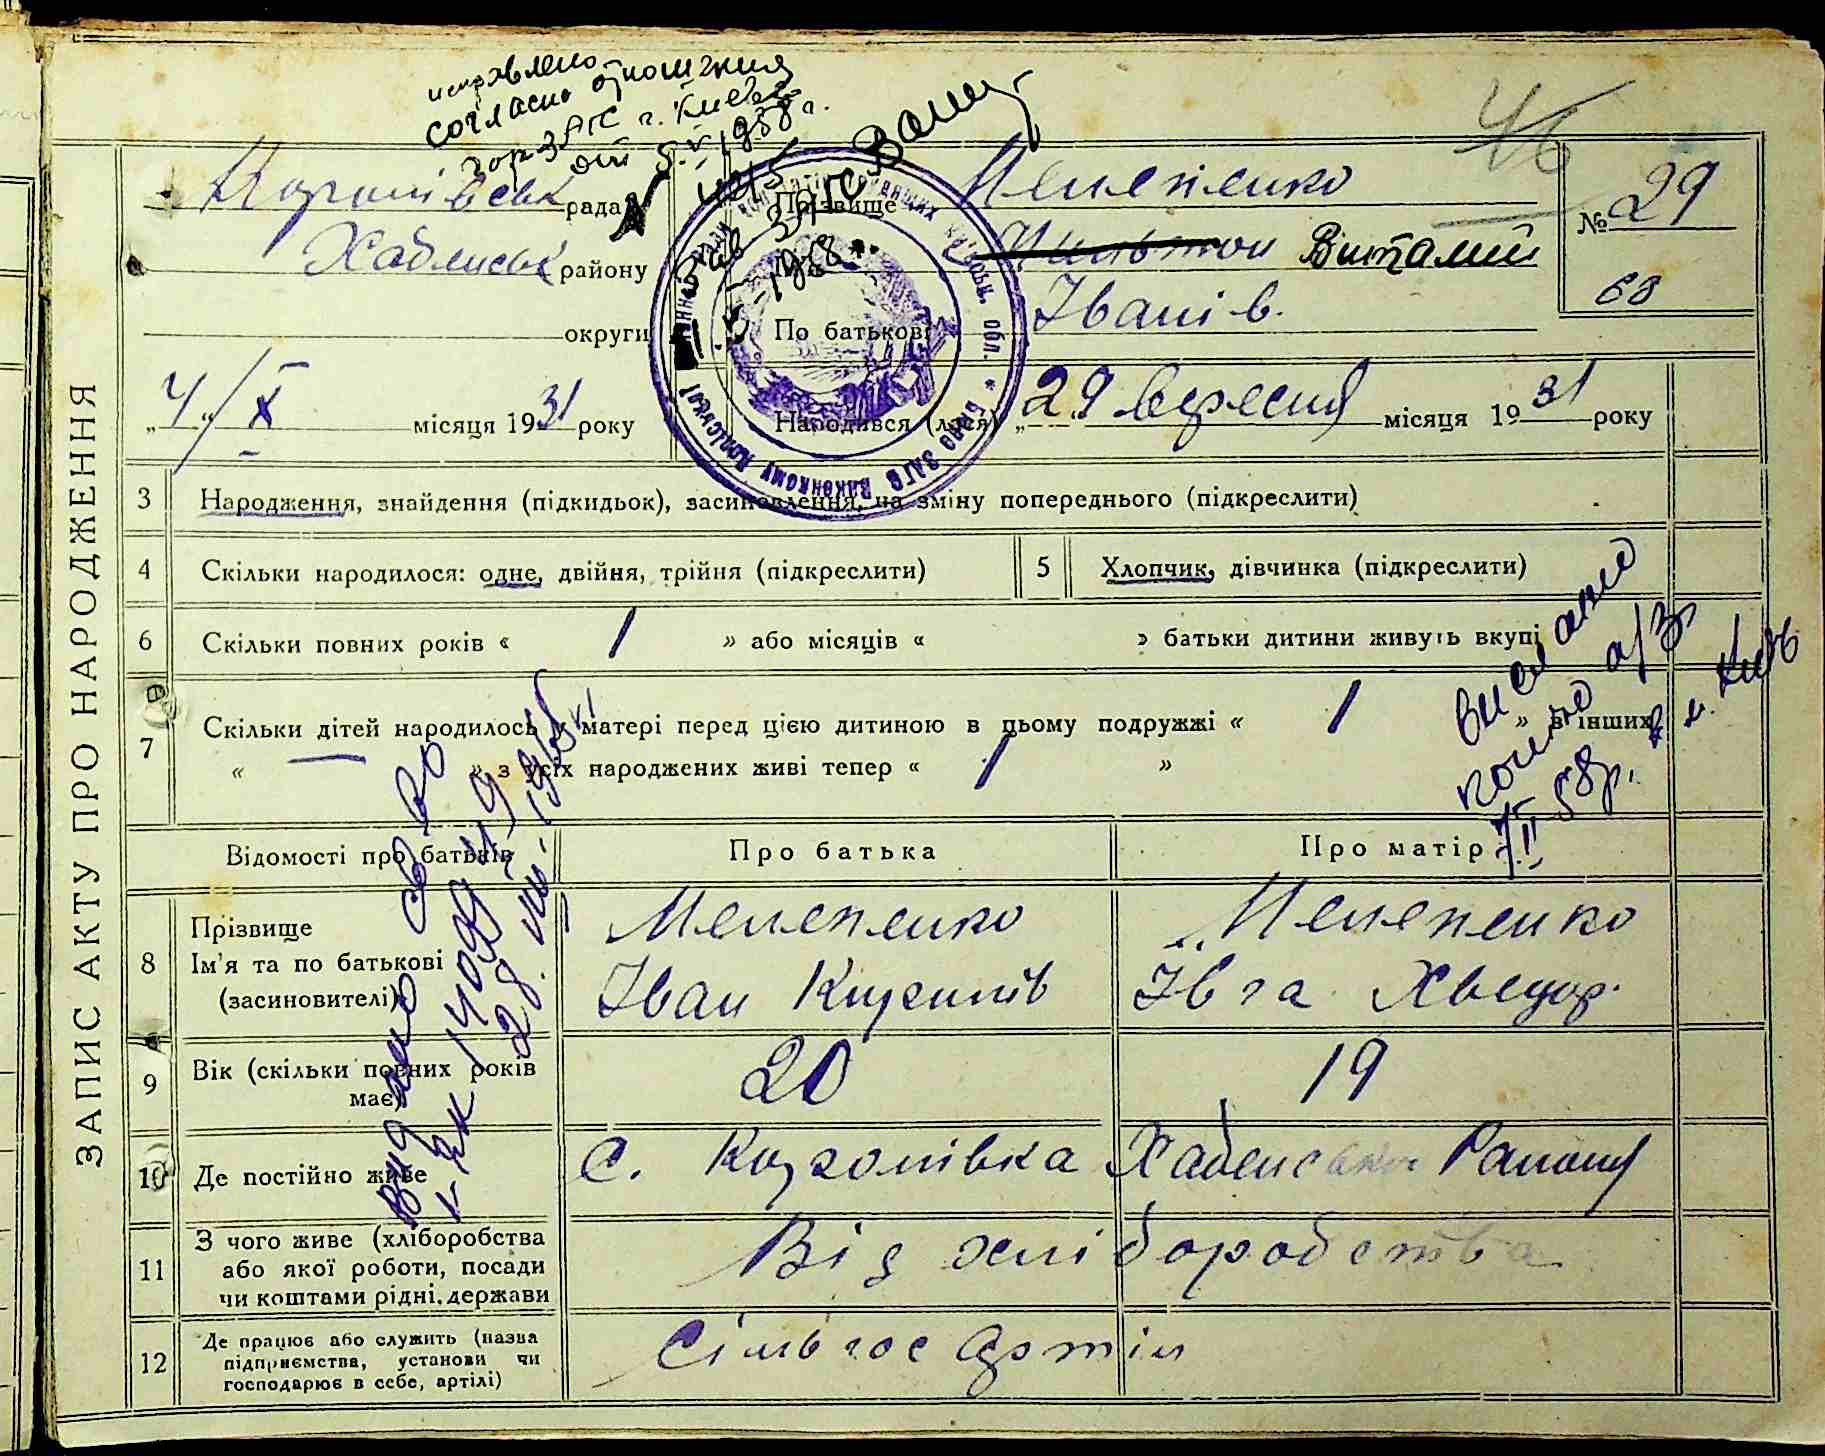 исправлено
согласно отношения
гор ЗАГС г. Киева
от 5.V 1958 г.
Зав ЗАГС
ЗАПИС АКТУ ПРО НАРОДЖЕННЯ
рада
району
округи
Прізвище Мележенко
Виталий
По батькові Іванів.
№ 29
68
46
„4" X місяця 1931 року
Народився (лася) „29 вересня місяця 1931 року
3 Народження, знайдення (підкидьок), засиновлення, на зміну попереднього (підкреслити)
4 Скільки народилося: одне, двійня, трійня (підкреслити)
5 Хлопчик, дівчинка (підкреслити)
6 Скільки повних років « 1 » або місяців « » батьки дитини живуть вкупі
7 Скільки дітей народилось у матері перед цією дитиною в цьому подружжі « 1 » в інших
« — » з усіх народжених живі тепер « 1 »
Відомості про батьків
Про батька
Про матір
8 Прізвище
Ім'я та по батькові
(засиновителі)
Мележенко
Іван
Мележенко
Івга Хведор.
9 Вік (скільки повних років
має)
20
19
10 Де постійно живе
с.
11 З чого живе (хліборобства
або якої роботи, посади
чи коштами рідні, держави
Від хліборобства
12 Де працює або служить (назва
підприємства, установи чи
господарює в себе, артілі)
Сільгос Артіл
Видано св во
вислано
копію а/з
в м. Київ
7.II 58р.